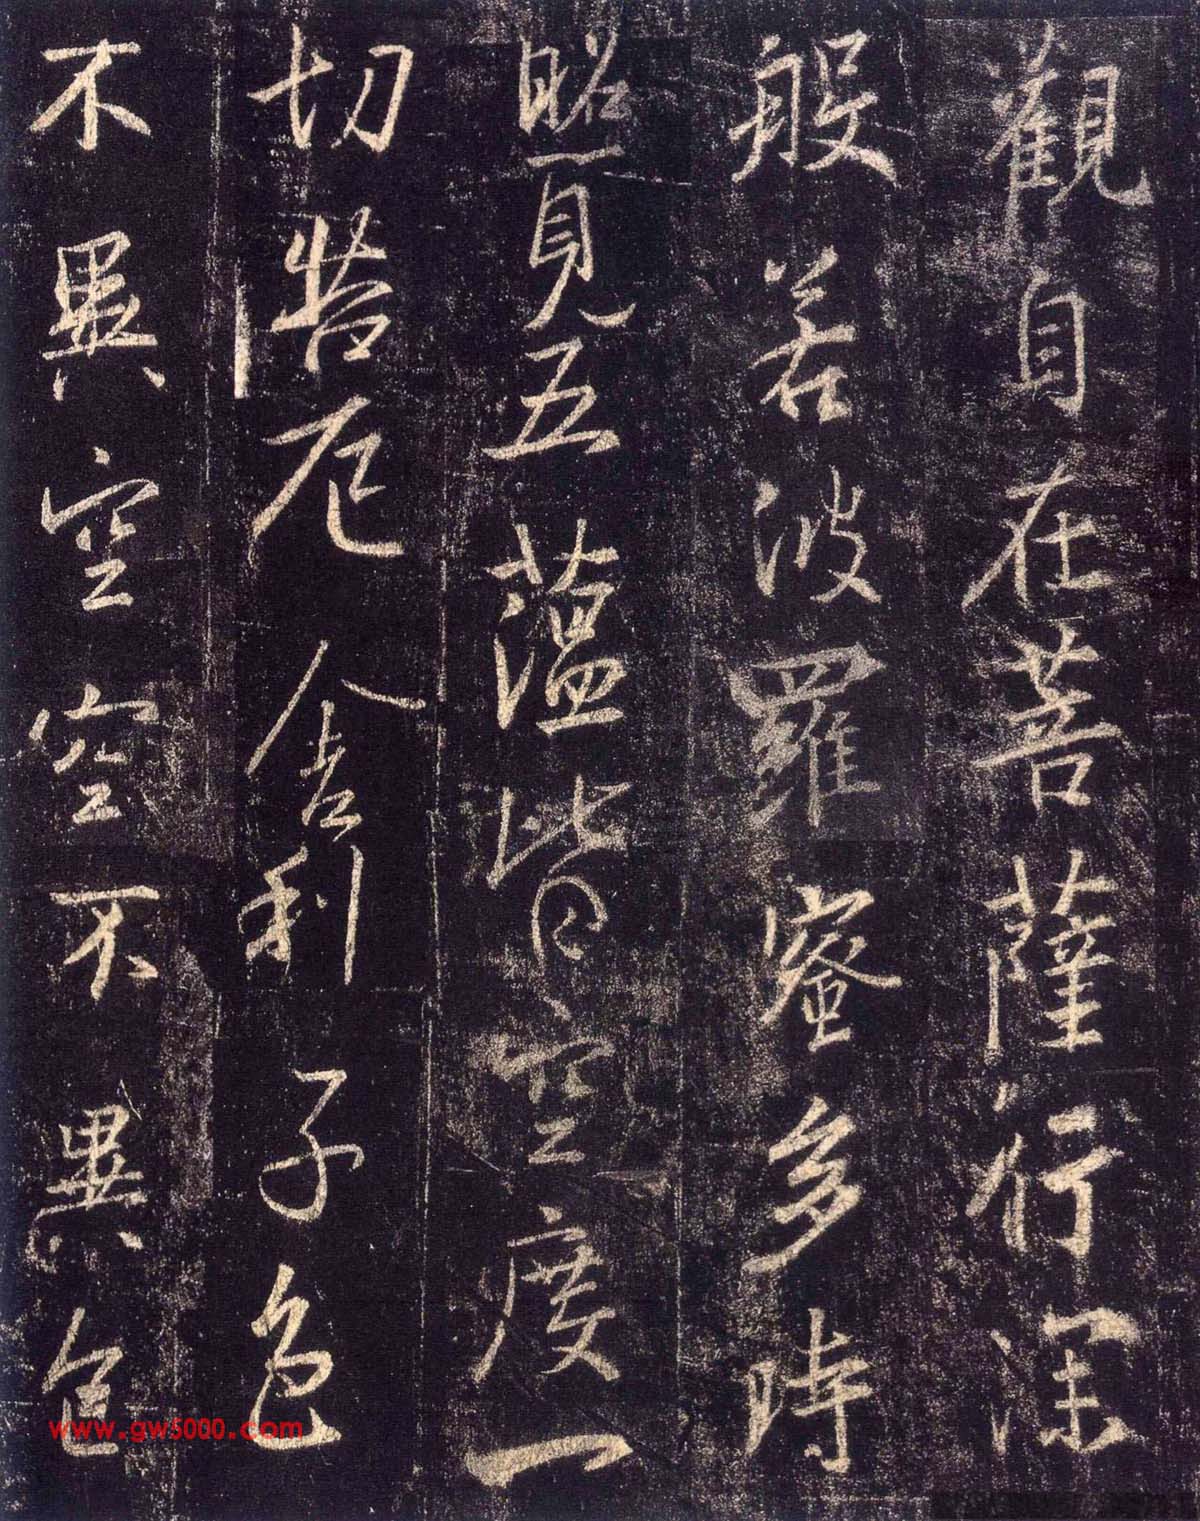 觀自在菩薩行深
般若波羅蜜多時
照見五蘊皆空度一
切苦厄舍利子色
不異空空不異色
www.gw5000.com